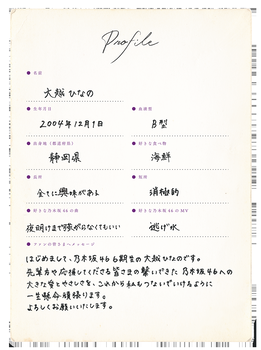 Profile
名前
大越 ひなの
生年月日
2004年12月1日
血液型
B型
出身地(都道府県)
静岡県
好きな食べ物
海鮮
長所
全てに興味がある
短所
消極的
好きな乃木坂46の曲
夜明けまで強がらなくてもいい
好きな乃木坂46のMV
逃げ水
ファンの皆さまへメッセージ
はじめまして、乃木坂46 6期生の大越ひなのです。
先輩方や応援してくださる皆さまの繋いできた 乃木坂46への
大きな愛とやさしさを、これから私もつないでいけるように
一生懸命頑張ります。
よろしくお願いいたします。